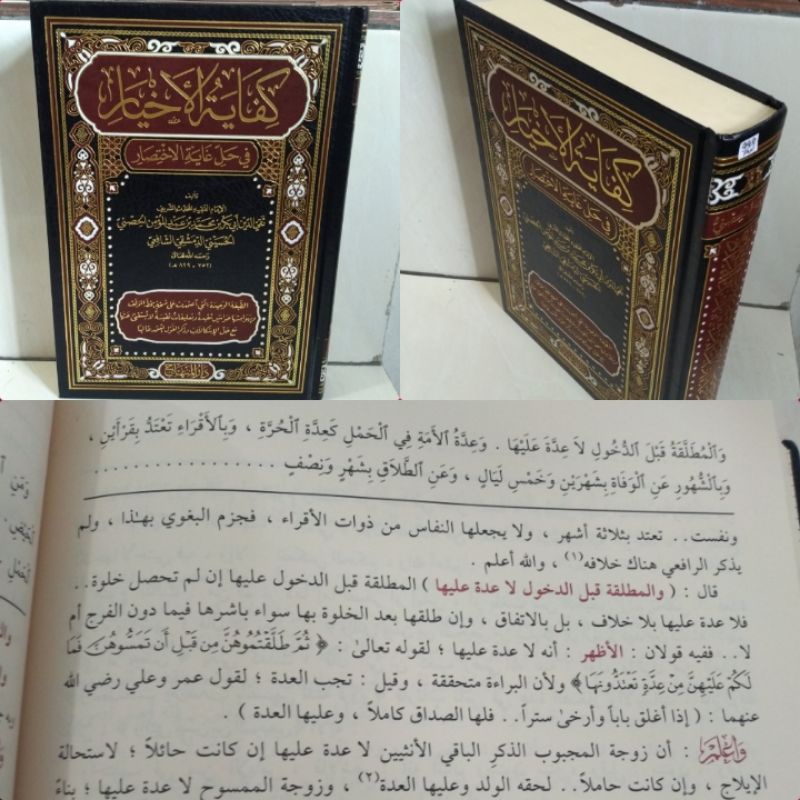 كفاية الأخيار
في حل غاية الاختصار
تأليف
الإمام الفقيه المحدث الشريف
تقي الدين أبي بكر بن محمد بن عبد المؤمن الحصني
الحسيني الدمشقي الشافعي
رحمه الله تعالى
(٧٥٢ - ٨٢٩ هـ)
دار المنهاج
كفاية الأخيار
في حل غاية الاختصار
وَالْمُطَلَّقَةُ قَبْلَ الدُّخُولِ لاَ عِدَّةَ عَلَيْهَا . وَعِدَّةُ الأَمَةِ فِي الْحَمْلِ كَعِدَّةِ الْحُرَّةِ ، وَبِالأَقْرَاءِ تَعْتَدُّ بِقَرْأَيْنِ ،
وَبِالشُّهُورِ عَنِ الْوَفَاةِ بِشَهْرَيْنِ وَخَمْسِ لَيَالٍ ، وَعَنِ الطَّلاَقِ بِشَهْرٍ وَنِصْفٍ ................
ونفست.. تعتد بثلاثة أشهر ، ولا يجعلها النفاس من ذوات الأقراء ، فجزم البغوي بهـٰذا ، ولم
يذكر الرافعي هناك خلافه(١) ، والله أعلم .
قال : ( والمطلقة قبل الدخول لا عدة عليها ) المطلقة قبل الدخول عليها إن لم تحصل خلوة..
فلا عدة عليها بلا خلاف ، بل بالاتفاق ، وإن طلقها بعد الخلوة بها سواء باشرها فيما دون الفرج أم
لا.. ففيه قولان : الأظهر : أنه لا عدة عليها ؛ لقوله تعالىٰ : ﴿ ثُمَّ طَلَّقْتُمُوهُنَّ مِن قَبْلِ أَن تَمَسُّوهُنَّ فَمَا
لَكُمْ عَلَيْهِنَّ مِنْ عِدَّةٍ تَعْتَدُّونَهَا﴾ ولأن البراءة متحققة ، وقيل : تجب العدة ؛ لقول عمر وعلي رضي الله
عنهما : ( إذا أغلق باباً وأرخىٰ ستراً.. فلها الصداق كاملاً ، وعليها العدة ) .
وَاعْلَمْ : أن زوجة المجبوب الذكرِ الباقي الأنثيين لا عدة عليها إن كانت حائلاً ؛ لاستحالة
الإيلاج ، وإن كانت حاملاً.. لحقه الولد وعليها العدة(٢) ، وزوجة الممسوح لا عدة عليها ؛ بناءً